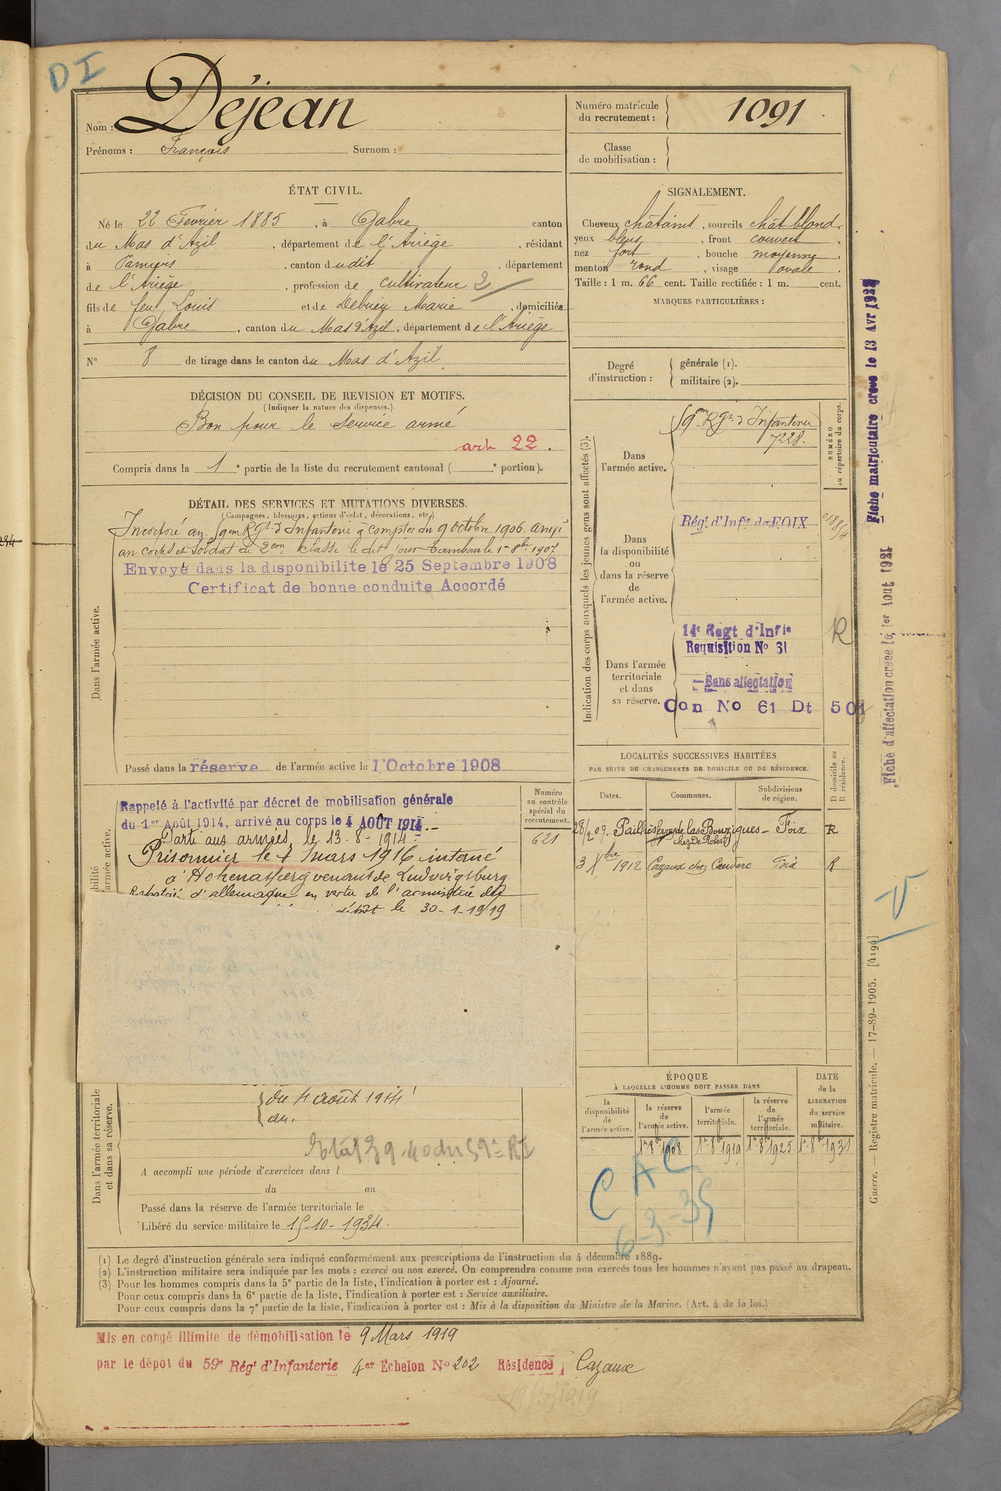 DI
Nom : Déjean
Prénoms : François Surnom :
Numéro matricule du recrutement : 1091
Classe de mobilisation :
ÉTAT CIVIL.
Né le 22 Fevrier 1885, à Gabre canton
du Mas d'Azil, département de l'Ariège, résidant
à Pamiers, canton dudit, département
de l'Ariège, profession de cultivateur 2
fils de feu Louis et de Marie, domiciliés
à Gabre, canton du Mas d'Azil, département de l'Ariège
N° 8 de tirage dans le canton du Mas d'Azil
SIGNALEMENT.
Cheveux châtains, sourcils chât blond.
yeux bleus, front couvert
nez fort, bouche moyenne
menton rond, visage ovale
Taille : 1 m. 66 cent. Taille rectifiée : 1 m. cent.
MARQUES PARTICULIÈRES :
Degré d'instruction : générale (1).
militaire (2).
DÉCISION DU CONSEIL DE REVISION ET MOTIFS.
(Indiquer la nature des dispenses.)
Bon pour le service armé
art 22.
Compris dans la 1e partie de la liste du recrutement cantonal ( e portion).
DÉTAIL DES SERVICES ET MUTATIONS DIVERSES.
(Campagnes, blessures, actions d'éclat, décorations, etc.)
Incorporé au 59me Rgt d'Infanterie à compter du 9 octobre 1906. arrivé
au corps et soldat de 2me classe le dit jour Tambour le 1er 8bre 1907.
Envoyé dans la disponibilite le 25 Septembre 1908
Certificat de bonne conduite Accordé
Dans l'armée active.
Passé dans la réserve de l'armée active le 1 Octobre 1908
Indication des corps auxquels les jeunes gens sont affectés (3).
NUMÉRO au répertoire du corps.
Dans l'armée active.
59me Rgt d'Infanterie
7228.
Dans la disponibilité ou dans la réserve de l'armée active.
Rég. d'Infie de FOIX
Dans l'armée territoriale et dans sa réserve.
14e Regt d'Infie
Requisition No 31
Sans affectation
Can No 61 Dt 501
R
Fiche matriculaire creee le 13 Avr 1922
Fiche d'affectation creee le 1er Aout 1921
LOCALITÉS SUCCESSIVES HABITÉES
PAR SUITE DE CHANGEMENTS DE DOMICILE OU DE RÉSIDENCE.
D domicile ou R résidence.
Dates. Communes. Subdivisions de région.
Pailhès Foix R
1912 Cazaux chez Foix R
Numéro au contrôle spécial du recrutement.
621
Rappelé à l'activité par décret de mobilisation générale
du 1er Août 1914, arrivé au corps le 4 AOÛT 1914.
Parti aux armées le 13-8-1914
Prisonnier le 1 mars 1916 interné
à Hohenasperg venant de Ludwigsburg
Rapatrié d'allemagne en vertu de l'armistice
le 30-1-1919
Dans l'armée territoriale et dans sa réserve.
du 4 août 1914
au
A accompli une période d'exercices dans l
du au
Passé dans la réserve de l'armée territoriale le
Libéré du service militaire le 15-10-1934.
ÉPOQUE
À LAQUELLE L'HOMME DOIT PASSER DANS
DATE de la LIBÉRATION du service militaire.
la disponibilité de l'armée active.
la réserve de l'armée active.
l'armée territoriale.
la réserve de l'armée territoriale.
1er 8bre 1908 1er 8bre 1919 1er 8bre 1925 1er 8bre 1931
CAC
6-3-35
Guerre. — Registre matricule. — 17-89-1905. [4194]
(1) Le degré d'instruction générale sera indiqué conformément aux prescriptions de l'instruction du 4 décembre 1889.
(2) L'instruction militaire sera indiquée par les mots : exercé ou non exercé. On comprendra comme non exercés tous les hommes n'ayant pas passé au drapeau.
(3) Pour les hommes compris dans la 5e partie de la liste, l'indication à porter est : Ajourné.
Pour ceux compris dans la 6e partie de la liste, l'indication à porter est : Service auxiliaire.
Pour ceux compris dans la 7e partie de la liste, l'indication à porter est : Mis à la disposition du Ministre de la Marine. (Art. 4 de la loi.)
Mis en congé illimite de démobilisation le 9 Mars 1919
par le dépot du 59e Rég. d'Infanterie 4er Echelon No 202 Résidence Cazaux